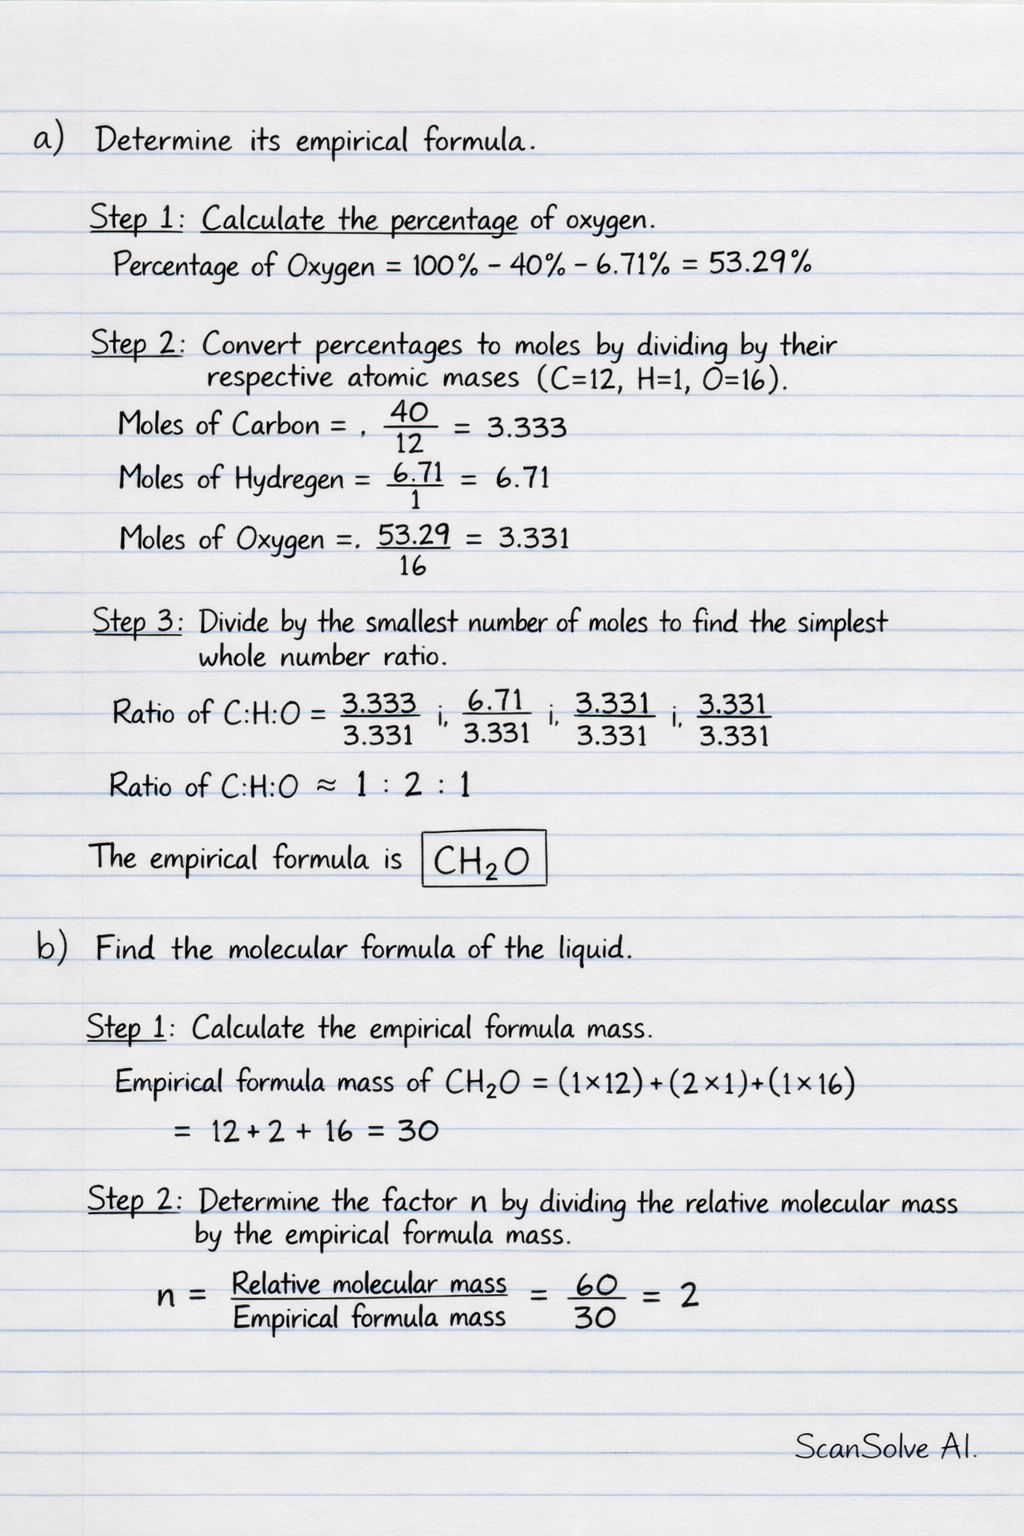 a) Determine its empirical formula.
Step 1: Calculate the percentage of oxygen.
Percentage of Oxygen = 100% - 40% - 6.71% = 53.29%
Step 2: Convert percentages to moles by dividing by their
respective atomic mases (C=12, H=1, O=16).
Moles of Carbon = , 40/12 = 3.333
Moles of Hydregen = 6.71/1 = 6.71
Moles of Oxygen =. 53.29/16 = 3.331
Step 3: Divide by the smallest number of moles to find the simplest
whole number ratio.
Ratio of C:H:O = 3.333/3.331 i, 6.71/3.331 i, 3.331/3.331 i, 3.331/3.331
Ratio of C:H:O ≈ 1 : 2 : 1
The empirical formula is CH₂O
b) Find the molecular formula of the liquid.
Step 1: Calculate the empirical formula mass.
Empirical formula mass of CH₂O = (1×12)+(2×1)+(1×16)
= 12+2 + 16 = 30
Step 2: Determine the factor n by dividing the relative molecular mass
by the empirical formula mass.
n = Relative molecular mass/Empirical formula mass = 60/30 = 2
ScanSolve AI.